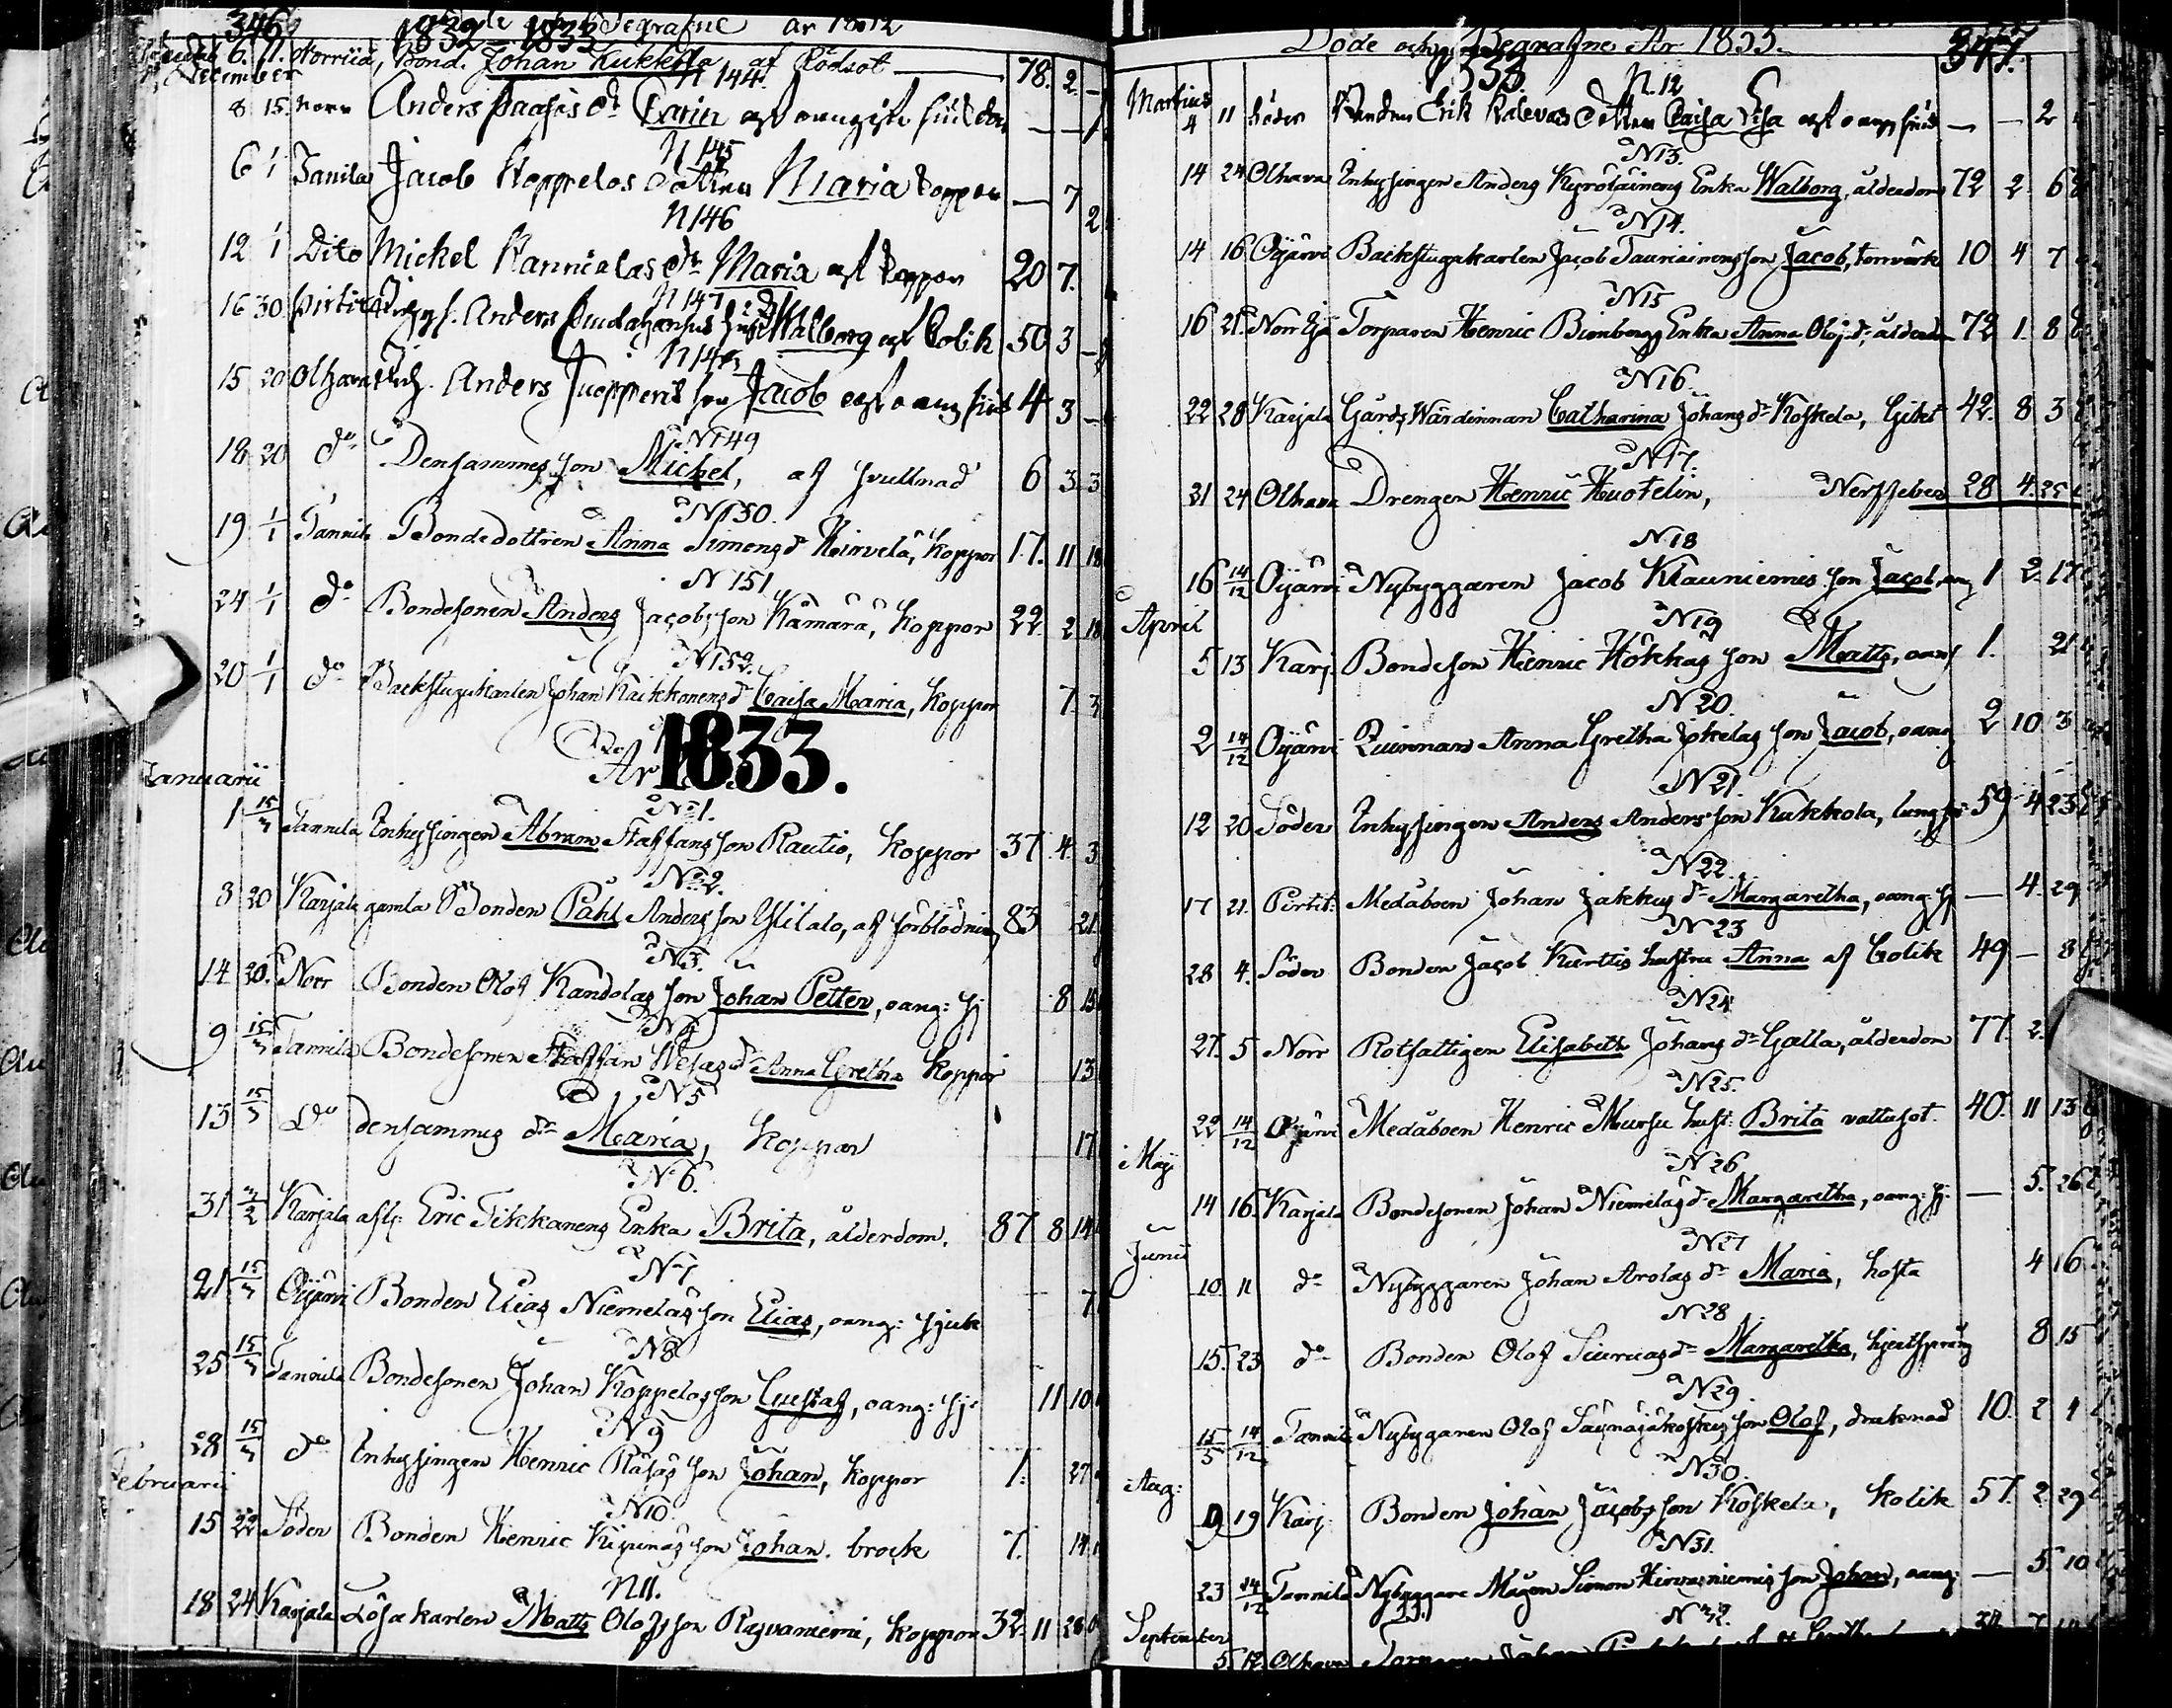 346
1832 1833
Begrafne år 1832
December 6. 11. Bond. Johan Kukkola af Rödsot — 78. 2. —
N 144.
8 15. Norr Anders dr Carin — —
N 145
6 1/1 Tanila Jacob Koppelos dottren Maria koppor — 7 2
N 146
12 1/1 Dito Michel Kannialas dr Maria af koppor 20 7.
N 147
16 30 Anders Walborg af Colik 50 3 —
N 148
15 20 Olhava Anders son Jacob 4 3 —
N 149
18 20 do Densammes son Michel, af svullnad 6 3 3
N 150.
19 1/1 Tannila Bondedottren Anna Simons dr Hirvelä, koppor 17. 11 18
N 151
24 1/1 do Bondesonen Anders Jacobsson Kämärä, koppor 22. 2 18
N 152.
20 1/1 do Backstugukarlen Johan Kaikkonens dr Caisa Maria, koppor 7. 3
År 1833.
Januarii
No 1.
1 15/3 Tannila Inhysingen Abram Staffansson Rautio, koppor 37 4. 3
No 2.
3 20 Karjala gamla Bonden Påhl Andersson Ylitalo, af förblödning 83 21.
N 3.
14 20. Norr Bonden Olof Kandolas son Johan Petter, oang: sj 8 15
N 4
9 15/3 Tannila Bondesonen Staffan Wesas dr Anna Gretha koppor 13
N 5
13 15/3 Do densammes dr Maria, koppor 17
N 6.
31 Karjala afl: Eric Tikkanens Enka Brita, ålderdom. 87 8 14
N 7
21 15/3 Oijärvi Bonden Elias Niemeläs son Elias, oang: sjuk 7
N 8
25 15/3 Tannila Bondesonen Johan Koppelos son Gustaf, oang: sj: 11 10
N 9
28 15/3 do Inhysingen Henric Räsäs son Johan, koppor 1. 27
Februarii
N 10.
15 22 Söder Bonden Henric Kipinäs son Johan. bråck 7. 14
N 11.
18 24 Karjala Lösakarlen Matts Olofsson Rajvaniemi, koppor 32. 11 28
Döde och Begrafne År 1833.
1833.
347.
Martius
N. 12
4 11 Söder Bonden Erik dottren Caisa Lisa — — 2
N 13.
14 24 Olhava Inhysingen Anders Kyröläinens Enka Walborg, ålderdom 72 2 6
N 14.
14 16 Oijärvi Backstugukarlen Jacob Tauriainens son Jacob, torrvärk 10 4 7
N 15
16 21. Norr Ijo Torparen Henric Björnbergs Enka Anna Olofsd., ålderdom 72 1. 8
N 16.
22 28 Karjala Gårds Wärdinnan Catharina Johans dr Koskela, Gikt 42. 8 3
N 17.
21 24 Olhava Drengen Henric Huotelin, Nerffeber 28 4. 25
N 18
16 14/12 Oijärvi Nybyggaren Jacob Klauniemis son Jacob, oang 1 2. 17
April
N 19
5 13 Karj. Bondeson Henric Hökkas son Matts, oang 1. 21
N 20.
2 14/12 Oijärvi Quinnans Anna Gretha Jokelas son Jacob, oang 2 10 3
N 21.
12 20 Söder Inhysingen Anders Andersson Kukkola, lungs 59 4 23
N 22.
17 21. Pirtit: Medåboen Johan Jakkus dr Margaretha, oang. sj — 4. 29
N 23
28 4. Söder Bonden Jacob Kurttis hustru Anna af Colik 49 — 8
N 24
27. 5 Norr Rotfattigen Elisabeth Johans dr Galla, ålderdom 77. 2.
N 25.
22 14/12 Oijärvi Medåboen Henric Mursu hust: Brita vattusot. 40. 11 13
Maji
N 26
14 16. Karjala Bondesonen Johan Niemeläs dr Margaretha, oang: sj: — 5. 26
Junii
N 27
10 11 do Nybyggaren Johan Arolas dr Maria, hosta 4 16
N 28
15. 23 do Bonden Olof Siuruas dr Margaretha, hjertspräng 8. 15
N 29
15/5 14/12 Tannila Nybygaren Olof Saynäjäkoskis son Olof, druknad 10. 2 1
Aug:
N 30.
9 19 Karj: Bonden Johan Jacobsson Koskela, kolik 57. 2. 29
N 31.
23 14/12 Tannila Nybyggare Mågen Simon Hirvasniemis son Johan, oang: — 5. 10
September
N 32.
5. 12. Olhava Torparen Johan